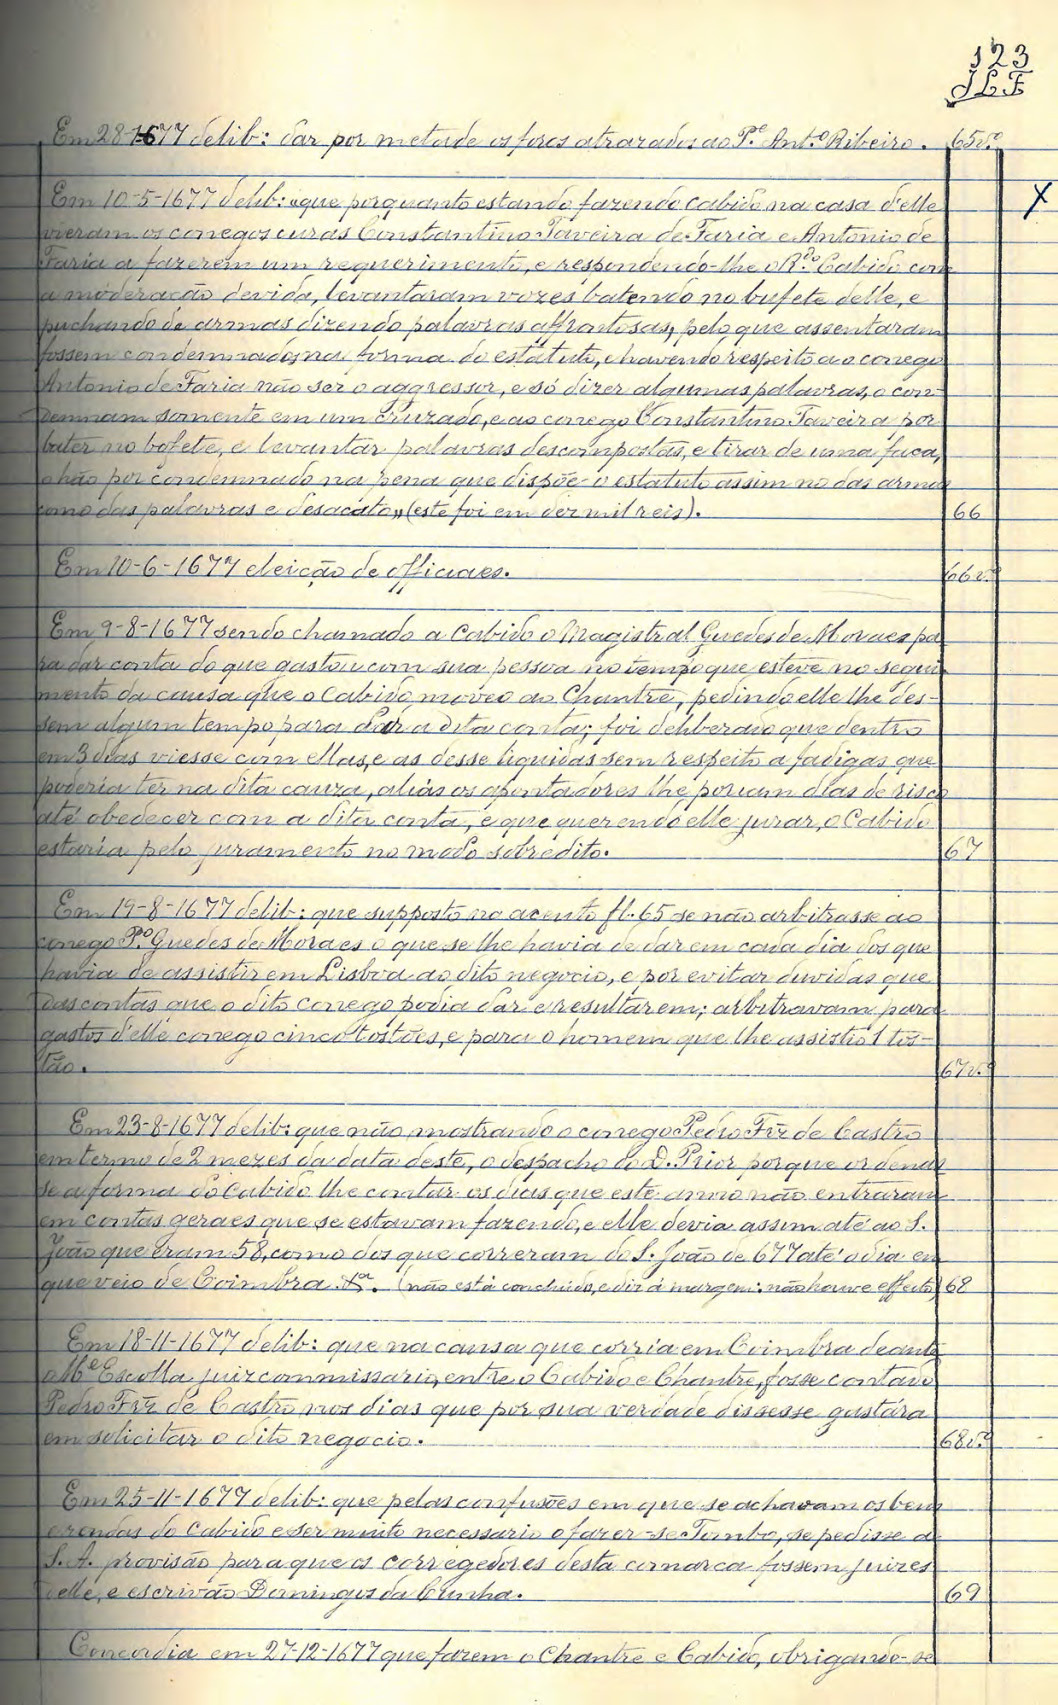 123
JLF
Em 28-1-1677 delib: dar por metade os foros atrazados ao P.e Ant.o Ribeiro. 65v.o
Em 10-5-1677 delib: "que porquanto estando fazendo cabido na casa d'elle X
vieram os conegos curas Constantino Taveira de Faria e Antonio de
Faria a fazerem um requerimento, e respondendo-lhe o R.do Cabido com
a moderação devida, levantaram vozes batendo no bufete delle, e
puchando de armas dizendo palavras affrontosas, pelo que assentaram
fossem condemnados na forma do estatuto, e havendo respeito a o conego
Antonio de Faria não ser o aggressor, e só dizer algumas palavras, o con-
demnam somente em um cruzado, e ao conego Constantino Taveira por
bater no bofete, e levantar palavras descompostas, e tirar de uma faca,
o hão por condemnado na pena que dispõe o estatuto assim no das armas
como das palavras e desacato,, (este foi em dez mil reis). 66
Em 10-6-1677 eleição de officiaes. 66v.o
Em 9-8-1677 sendo chamado a Cabido o Magistral Guedes de Moraes pa
ra dar conta do que gastou com sua pessoa no tempo que esteve no segui-
mento da causa que o Cabido moveo ao Chantre, pedindo elle lhe des-
sem algum tempo para dar a dita conta; foi deliberado que dentro
em 3 dias viesse com ellas, e as desse liquidas sem respeito a fadigas que
poderia ter na dita cauza, aliás os apontadores lhe poriam dias de risco
até obedecer com a dita conta, e que querendo elle jurar, o Cabido
estaria pelo juramento no modo sobredito. 67
Em 19-8-1677 delib: que supposto no acento fl. 65 se não arbitrasse ao
conego P.o Guedes de Moraes o que se lhe havia de dar em cada dia dos que
havia de assistir em Lisboa ao dito negocio, e por evitar duvidas que
das contas que o dito conego podia dar e resultarem; arbitravam para
gastos d'elle conego cinco tostões, e para o homem que lhe assistio 1 tos-
tão. 67v.o
Em 23-8-1677 delib: que não mostrando o conego Pedro Frz de Castro
em termo de 2 mezes da data deste, o despacho do D. Prior porque ordenas
se a forma do Cabido lhe contar os dias que este anno não entraram
em contas geraes que se estavam fazendo, e elle devia assim até ao S.
João que eram 58, como dos que correram do S. João de 677 até o dia em
que veio de Coimbra &.a (não está concluido, e diz á margem: não houve effeito) 68
Em 18-11-1677 delib: que na causa que corria em Coimbra deante
o M.e Escolla juiz commissario, entre o Cabido e Chantre, fosse contado
Pedro Frz de Castro nos dias que por sua verdade dissesse gastára
em solicitar o dito negocio. 68v.o
Em 25-11-1677 delib: que pelas confusões em que se achavam os bens
e rendas do Cabido e ser muito necessario o fazer-se Tombo, se pedisse a
S. A. provisão para que os corregedores desta comarca fossem juizes
delle, e escrivão Domingos da Cunha. 69
Concordia em 27-12-1677 que fazem o Chantre e Cabido, obrigando-se